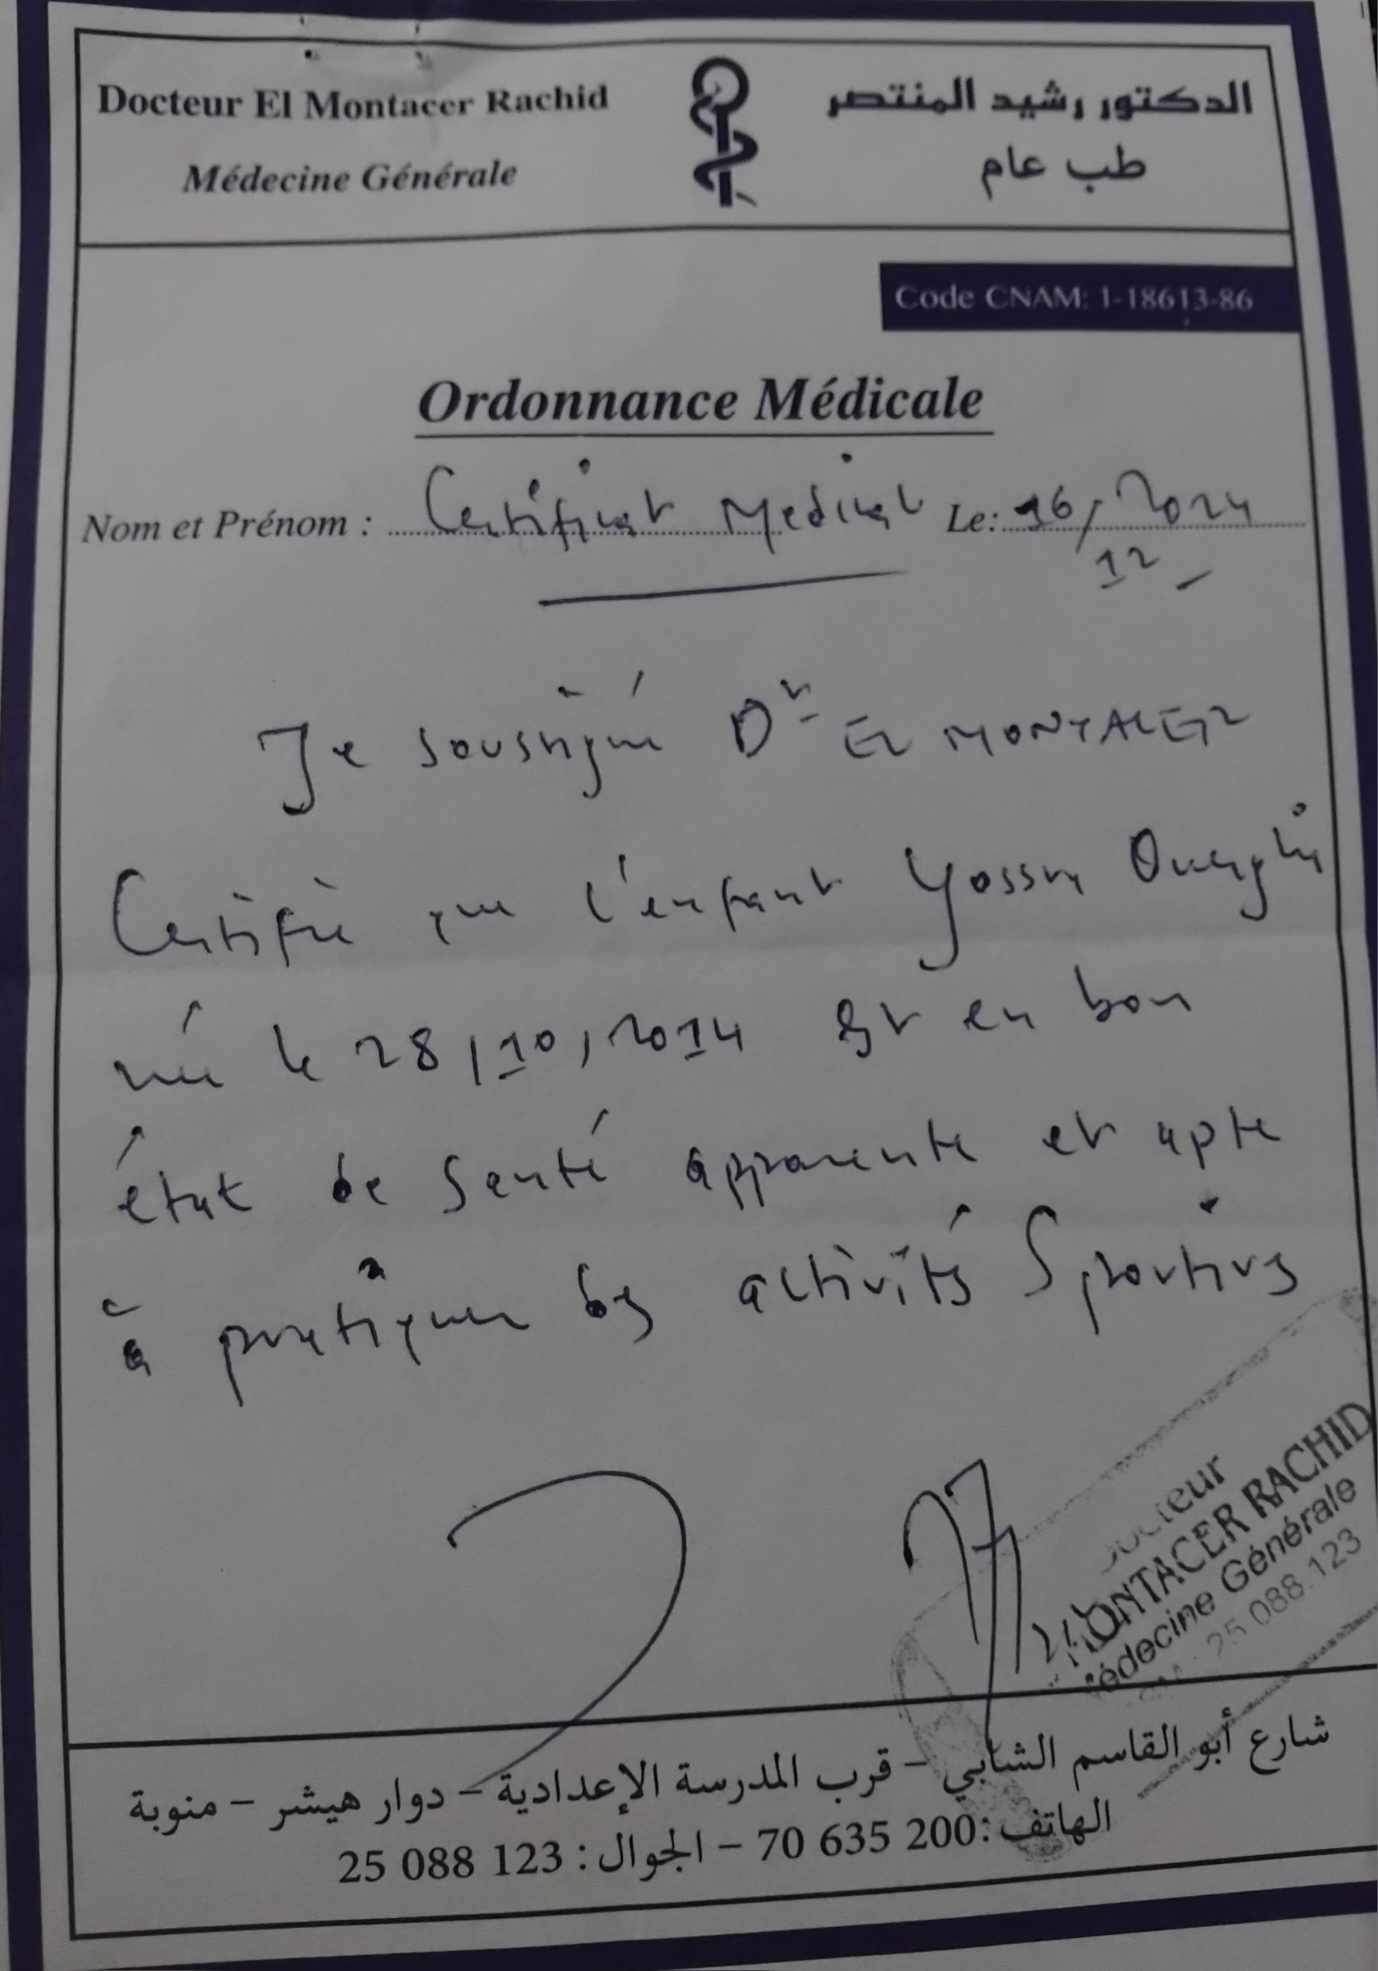 Docteur El Montacer Rachid
Médecine Générale
الدكتور رشيد المنتصر
طب عام
Code CNAM: 1-18613-86
Ordonnance Médicale
Nom et Prénom : Certificat Medical Le: 16/12/2024
Je soussigné Dr EL MONTACER
Certifie que l'enfant Yossra Ouerghi
née le 28/10/2014 est en bon
état de santé apparente et apte
à pratiquer des activités Sportives
Docteur
MONTACER RACHID
Médecine Générale
25 088 123
شارع أبو القاسم الشابي - قرب المدرسة الإعدادية - دوار هيشر - منوبة
الهاتف: 70 635 200 - الجوال: 25 088 123